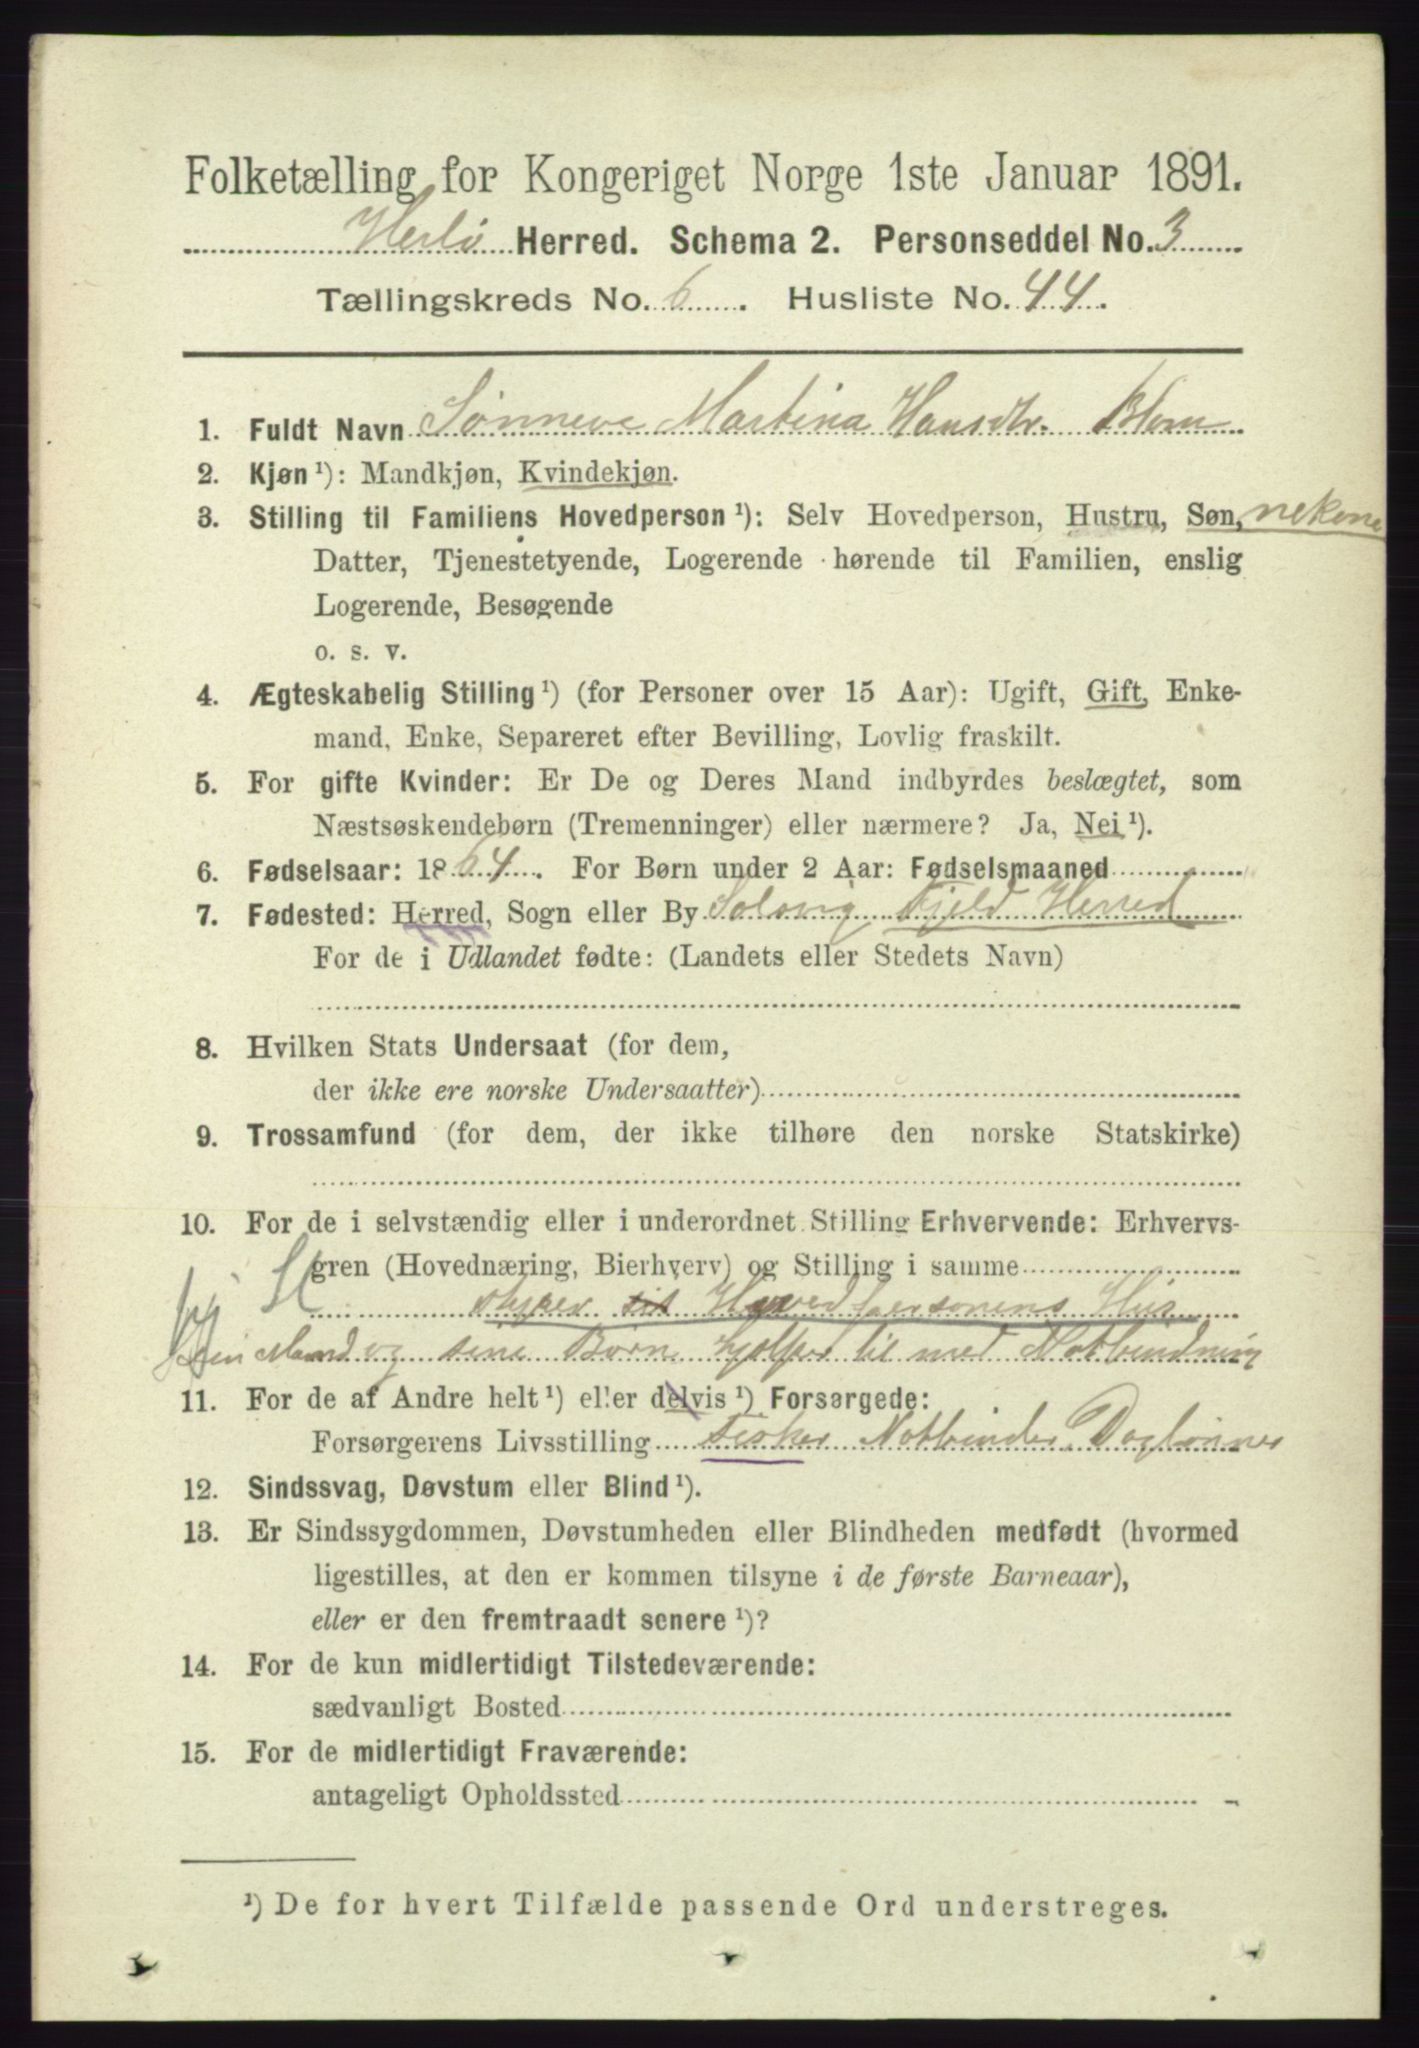 Folketælling for Kongeriget Norge 1ste Januar 1891.
Herlø Herred. Schema 2. Personseddel No. 3
Tællingskreds No. 6. Husliste No. 44.
1. Fuldt Navn Sønneve Martina Hansdtr. Blom
2. Kjøn ¹): Mandkjøn, Kvindekjøn.
3. Stilling til Familiens Hovedperson ¹): Selv Hovedperson, Hustru, Søn, nekone
Datter, Tjenestetyende, Logerende hørende til Familien, enslig
Logerende, Besøgende
o. s. v.
4. Ægteskabelig Stilling ¹) (for Personer over 15 Aar): Ugift, Gift, Enke-
mand, Enke, Separeret efter Bevilling, Lovlig fraskilt.
5. For gifte Kvinder: Er De og Deres Mand indbyrdes beslægtet, som
Næstsøskendebørn (Tremenninger) eller nærmere? Ja, Nei ¹).
6. Fødselsaar: 1864. For Børn under 2 Aar: Fødselsmaaned
7. Fødested: Herred, Sogn eller By Solsvig Fjeld Herred
For de i Udlandet fødte: (Landets eller Stedets Navn)
8. Hvilken Stats Undersaat (for dem,
der ikke ere norske Undersaatter)
9. Trossamfund (for dem, der ikke tilhøre den norske Statskirke)
10. For de i selvstændig eller i underordnet Stilling Erhvervende: Erhvervs-
gren (Hovednæring, Bierhverv) og Stilling i samme
styrer sit Hovedpersonens Hus
sin Mand og sine Børn hjælper til med Notbindning
11. For de af Andre helt ¹) eller delvis ¹) Forsørgede:
Forsørgerens Livsstilling Fisker Notbinder Daglønner
12. Sindssvag, Døvstum eller Blind ¹).
13. Er Sindssygdommen, Døvstumheden eller Blindheden medfødt (hvormed
ligestilles, at den er kommen tilsyne i de første Barneaar),
eller er den fremtraadt senere ¹)?
14. For de kun midlertidigt Tilstedeværende:
sædvanligt Bosted
15. For de midlertidigt Fraværende:
antageligt Opholdssted
¹) De for hvert Tilfælde passende Ord understreges.